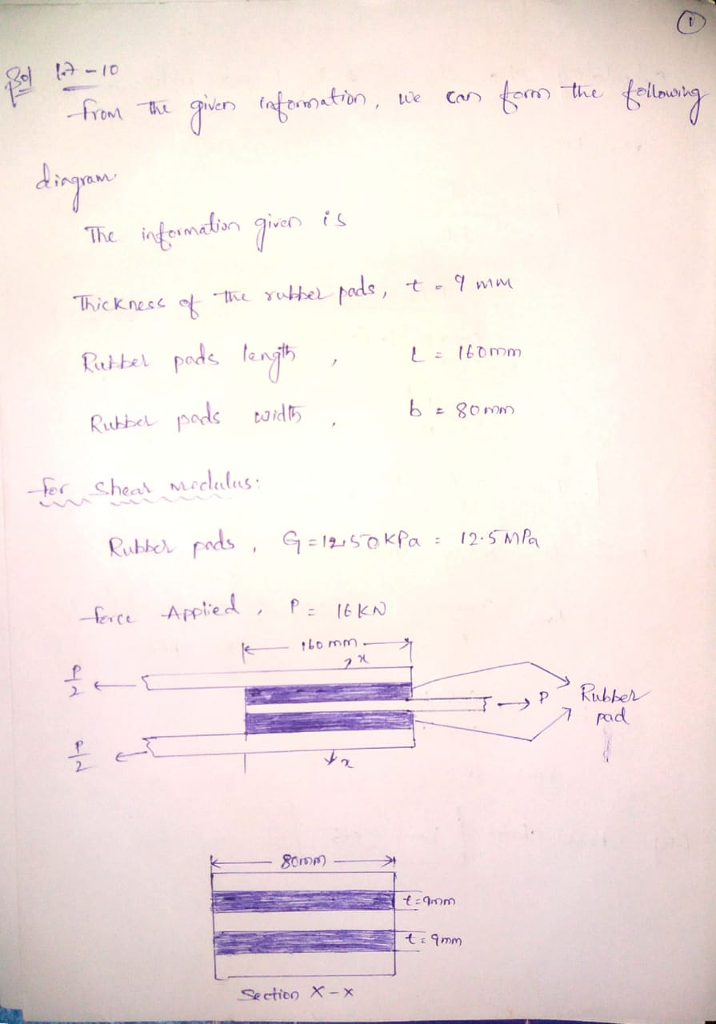 1
Sol 1.7-10
From the given information, we can form the following
diagram.
The information given is
Thickness of the rubber pads, t = 9 mm
Rubber pads length, L = 160mm
Rubber pads width, b = 80mm
For Shear modulus:
Rubber pads, G = 12,50KPa = 12.5 MPa
Force Applied, P = 16KN
160 mm
x
P/2
P
Rubber
pad
P/2
x
80mm
t = 9mm
t = 9mm
Section X-X